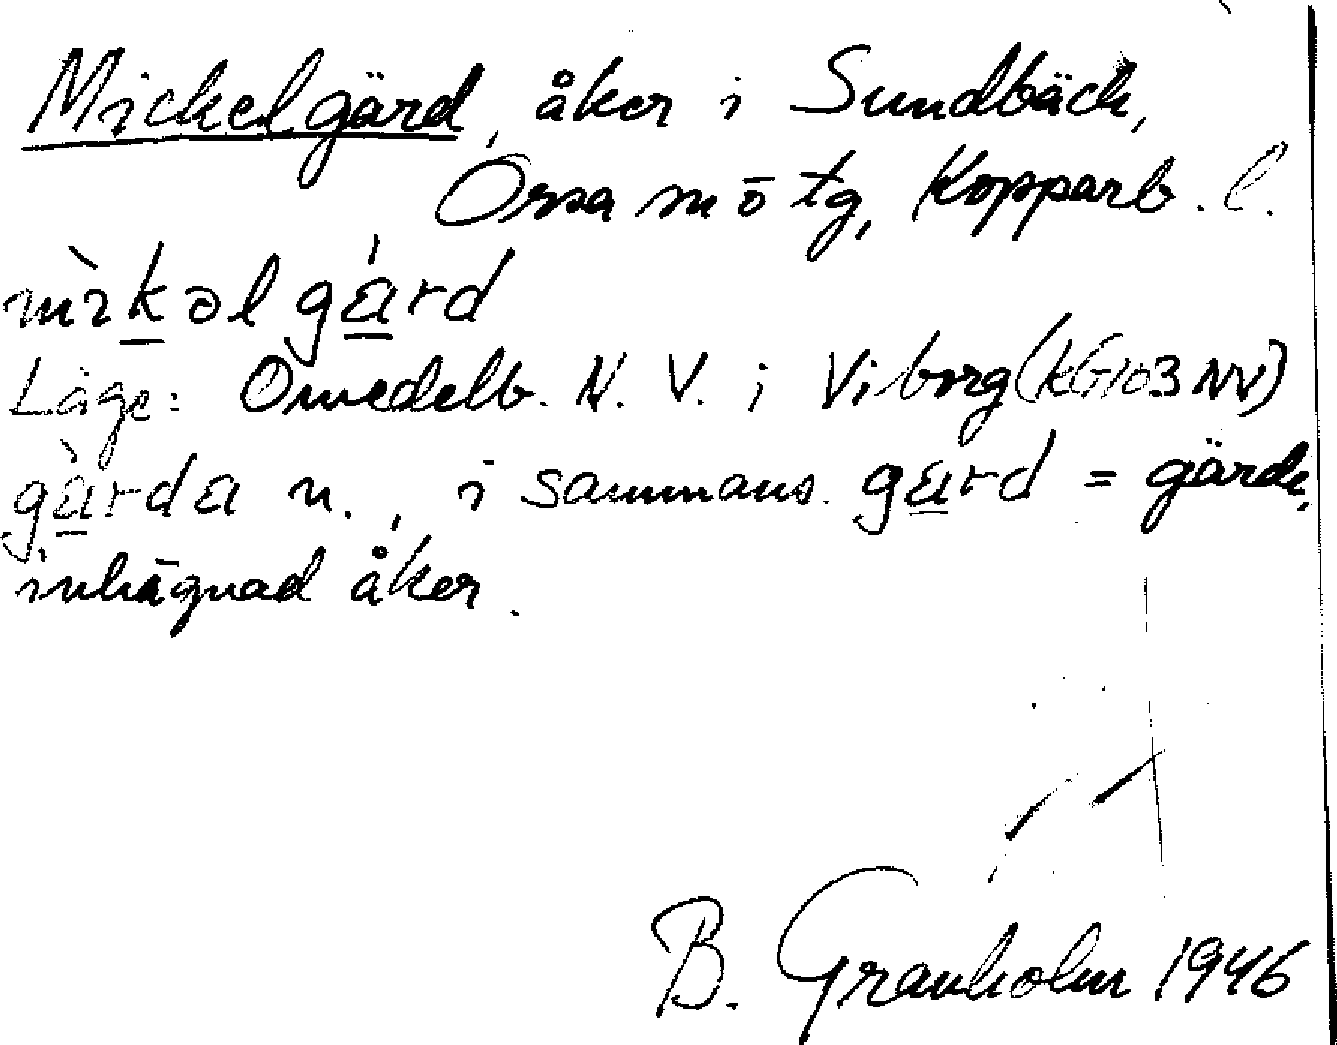 Mickelgärd, åker i Sundbäck,
Orsa sn ö tg, Kopparb. l.
mìkəl gárd
Läge: Omedelb. N. V. i Viborg (KG103 NV)
gàrda n., i sammans. gard = gärde,
inhägnad åker.
B. Granholm 1946